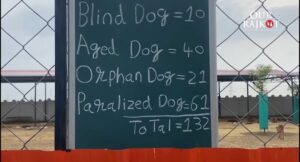 Blind Dog=10
Aged Dog = 40
Orphan Dog=21
Paralized Dog=61
ToTal=132
OUR
RAJKOT